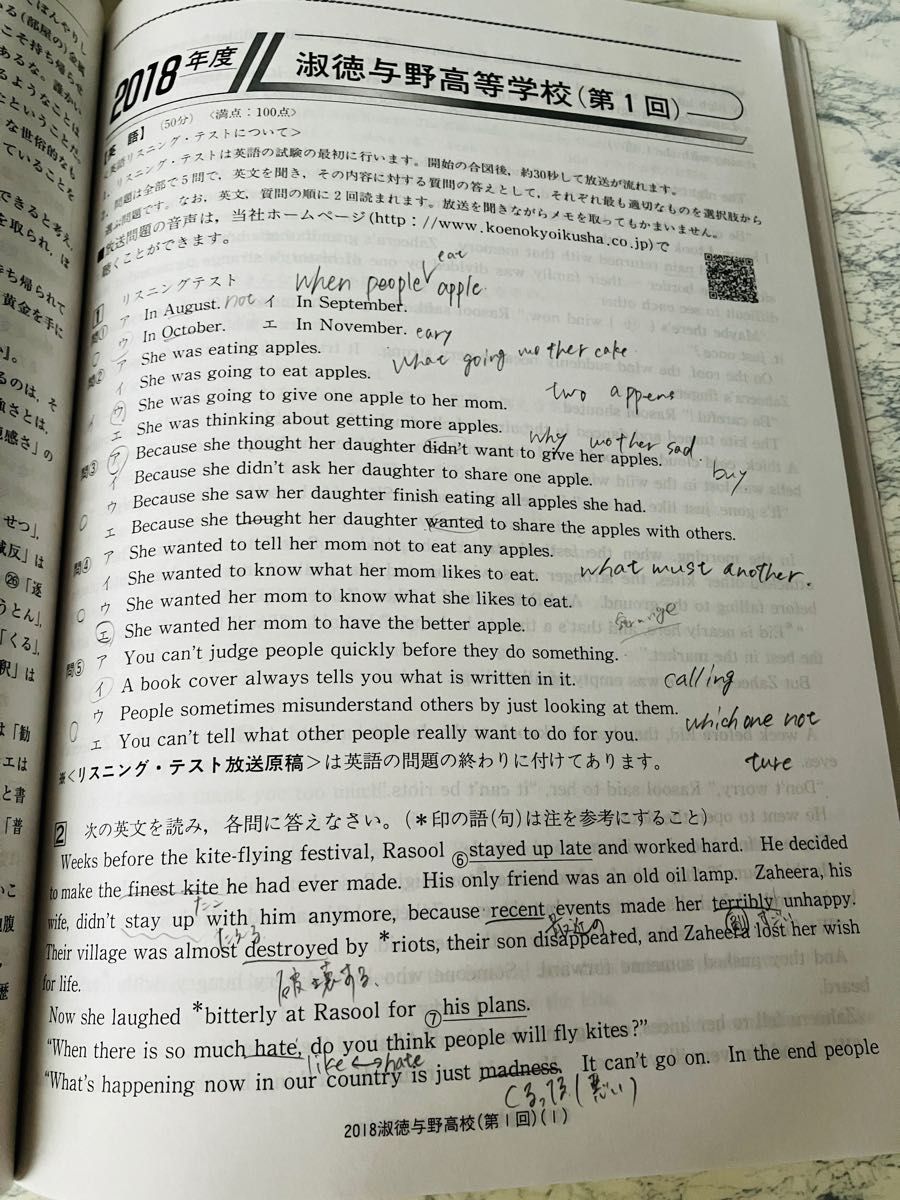 2018年度 淑徳与野高等学校(第1回)
【英 語】 (50分) 〈満点：100点〉
〈英語リスニング・テストについて〉
1．リスニング・テストは英語の試験の最初に行います。開始の合図後，約30秒して放送が流れます。
2．問題は全部で5問で，英文を聞き，その内容に対する質問の答えとして，それぞれ最も適切なものを選択肢から
選ぶ問題です。なお，英文，質問の順に2回読まれます。放送を聞きながらメモを取ってもかまいません。
■放送問題の音声は，当社ホームページ(http://www.koenokyoikusha.co.jp)で
聴くことができます。
1 リスニングテスト
when people eat apple
問① ア In August. not イ In September.
ウ In October. エ In November.
eary
問② ア She was eating apples.
what going mother cake
イ She was going to eat apples.
ウ She was going to give one apple to her mom.
two appens
エ She was thinking about getting more apples.
why mother sad
問③ ア Because she thought her daughter didn't want to give her apples.
buy
イ Because she didn't ask her daughter to share one apple.
ウ Because she saw her daughter finish eating all apples she had.
エ Because she thought her daughter wanted to share the apples with others.
問④ ア She wanted to tell her mom not to eat any apples.
イ She wanted to know what her mom likes to eat.
what must another.
ウ She wanted her mom to know what she likes to eat.
エ She wanted her mom to have the better apple.
strange
問⑤ ア You can't judge people quickly before they do something.
イ A book cover always tells you what is written in it.
calling
ウ People sometimes misunderstand others by just looking at them.
which one not
エ You can't tell what other people really want to do for you.
ture
※〈リスニング・テスト放送原稿〉は英語の問題の終わりに付けてあります。
2 次の英文を読み，各問に答えなさい。(＊印の語(句)は注を参考にすること)
Weeks before the kite-flying festival, Rasool ⑥stayed up late and worked hard. He decided
to make the finest kite he had ever made. His only friend was an old oil lamp. Zaheera, his
wife, didn't stay up with him anymore, because recent events made her terribly unhappy.
最近の
Their village was almost destroyed by *riots, their son disappeared, and Zaheera lost her wish
破壊する
for life.
Now she laughed *bitterly at Rasool for ⑦his plans.
"When there is so much hate, do you think people will fly kites?"
like ↔ hate
"What's happening now in our country is just madness. It can't go on. In the end people
2018淑徳与野高校(第1回)(1)